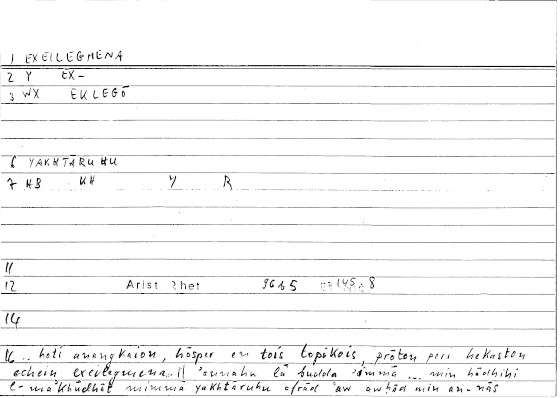 1 EXEILEGMENA
2 Y EX-
3 WX EKLEGŌ
6 YAKHTĀRUHU
7 HB KH Y R
11
12 Arist Rhet 96b5 8
14
16 .. hoti anangkaion, hōsper en tois topikois, prōton peri hekaston
echein exeilegmena.. || 'annahu lā budda 'immā ... min hādhihi
l-ma'khūdhāt mimmā yakhtāruhu afrād 'aw awḥād min an-nās